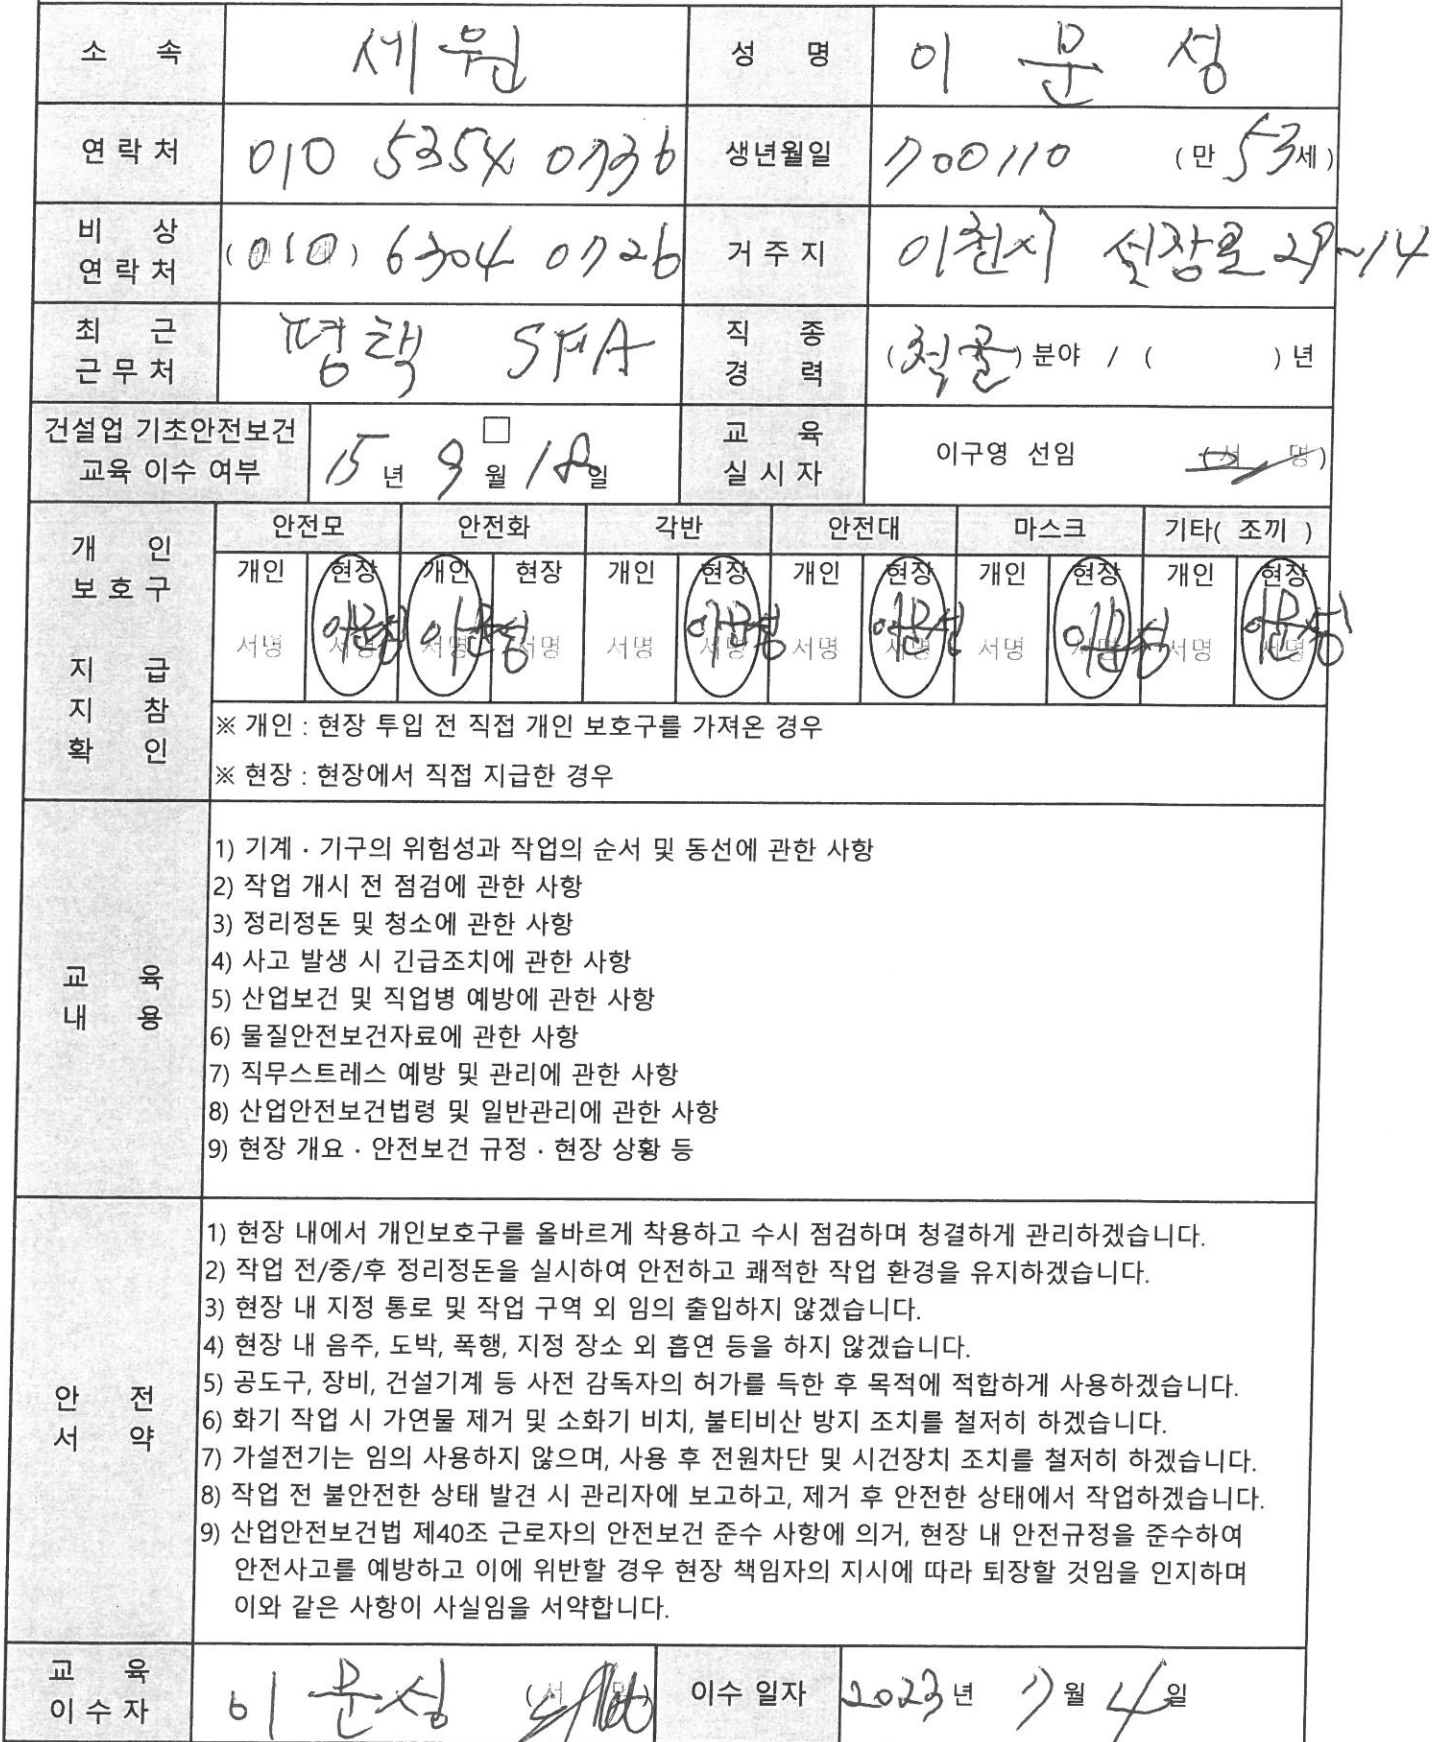 소 속 세원 성 명 이 문 성
연락처 010 5354 0736 생년월일 700110 (만 53세)
비 상
연락처 (010) 6304 0726 거주지 이천시 설장로 29~14
최 근
근무처 평택 SFA 직 종
경 력 (철골) 분야 / ( ) 년
건설업 기초안전보건
교육 이수 여부 15년 9월 18일 교 육
실시자 이구영 선임 (서 명)
개 인
보호구
지 급
지 참
확 인
안전모 안전화 각반 안전대 마스크 기타( 조끼 )
개인 현장 개인 현장 개인 현장 개인 현장 개인 현장 개인 현장
서명 이문성 이문성 서명 서명 이문성 서명 이문성 서명 이문성 서명 이문성
※ 개인 : 현장 투입 전 직접 개인 보호구를 가져온 경우
※ 현장 : 현장에서 직접 지급한 경우
교 육
내 용
1) 기계 · 기구의 위험성과 작업의 순서 및 동선에 관한 사항
2) 작업 개시 전 점검에 관한 사항
3) 정리정돈 및 청소에 관한 사항
4) 사고 발생 시 긴급조치에 관한 사항
5) 산업보건 및 직업병 예방에 관한 사항
6) 물질안전보건자료에 관한 사항
7) 직무스트레스 예방 및 관리에 관한 사항
8) 산업안전보건법령 및 일반관리에 관한 사항
9) 현장 개요 · 안전보건 규정 · 현장 상황 등
안 전
서 약
1) 현장 내에서 개인보호구를 올바르게 착용하고 수시 점검하며 청결하게 관리하겠습니다.
2) 작업 전/중/후 정리정돈을 실시하여 안전하고 쾌적한 작업 환경을 유지하겠습니다.
3) 현장 내 지정 통로 및 작업 구역 외 임의 출입하지 않겠습니다.
4) 현장 내 음주, 도박, 폭행, 지정 장소 외 흡연 등을 하지 않겠습니다.
5) 공도구, 장비, 건설기계 등 사전 감독자의 허가를 득한 후 목적에 적합하게 사용하겠습니다.
6) 화기 작업 시 가연물 제거 및 소화기 비치, 불티비산 방지 조치를 철저히 하겠습니다.
7) 가설전기는 임의 사용하지 않으며, 사용 후 전원차단 및 시건장치 조치를 철저히 하겠습니다.
8) 작업 전 불안전한 상태 발견 시 관리자에 보고하고, 제거 후 안전한 상태에서 작업하겠습니다.
9) 산업안전보건법 제40조 근로자의 안전보건 준수 사항에 의거, 현장 내 안전규정을 준수하여
안전사고를 예방하고 이에 위반할 경우 현장 책임자의 지시에 따라 퇴장할 것임을 인지하며
이와 같은 사항이 사실임을 서약합니다.
교 육
이수자 이 문성 (서 명) 이수 일자 2023년 7월 4일